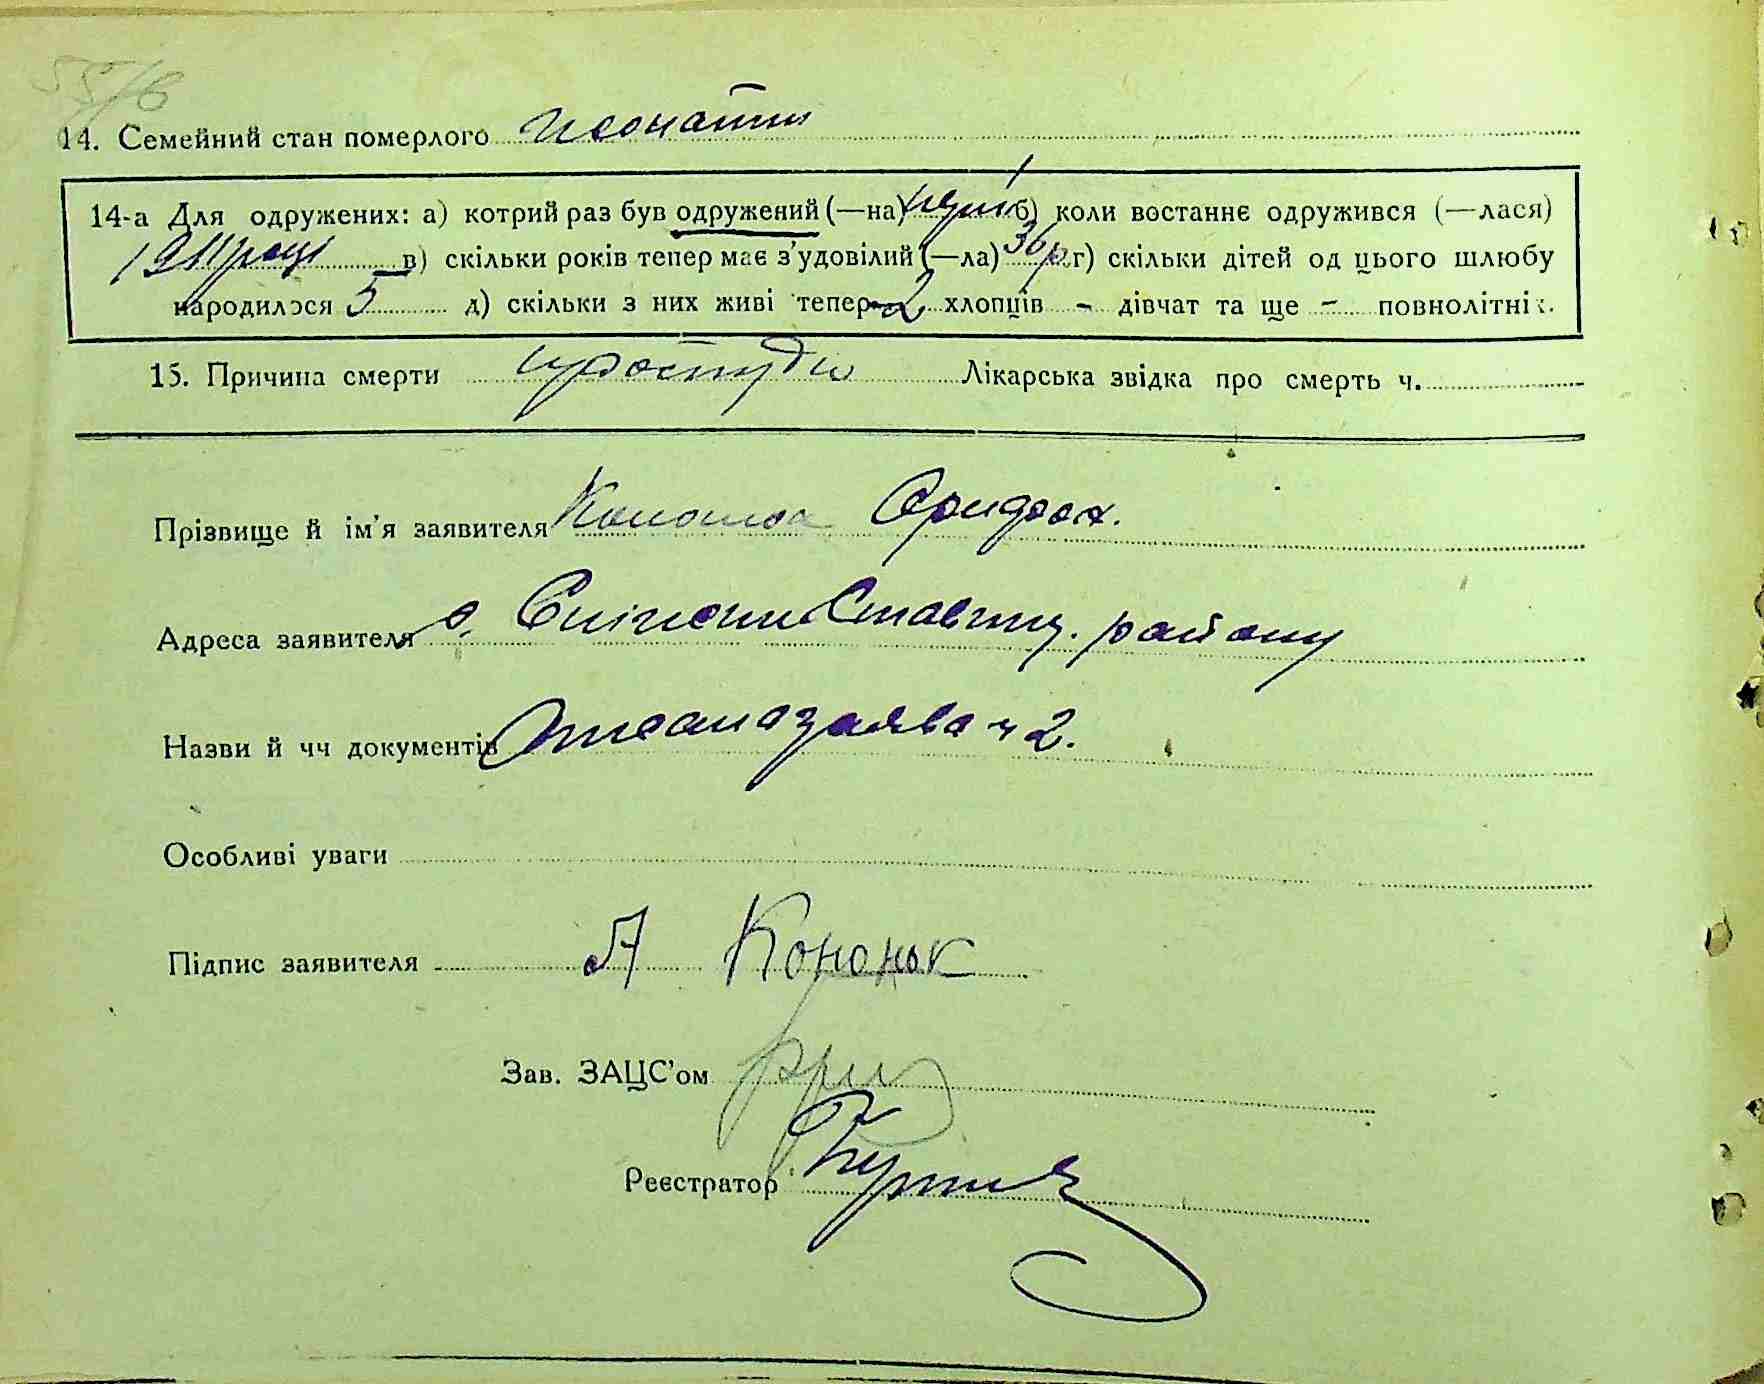 55/6
14. Семейний стан померлого жонатий
14-а Для одружених: а) котрий раз був одружений (—на) перший б) коли востаннє одружився (—лася)
1911 році в) скільки років тепер має з'удовілий (—ла) 36 р. г) скільки дітей од цього шлюбу
народилося 5 д) скільки з них живі тепер 2 хлопців - дівчат та ще - повнолітніх.
15. Причина смерти простуда Лікарська звідка про смерть ч.
Прізвище й ім'я заявителя
Адреса заявителя с. Ставищ. району
Назви й чч документів заява ч 2.
Особливі уваги
Підпис заявителя А Кононюк
Зав. ЗАЦС'ом
Реєстратор